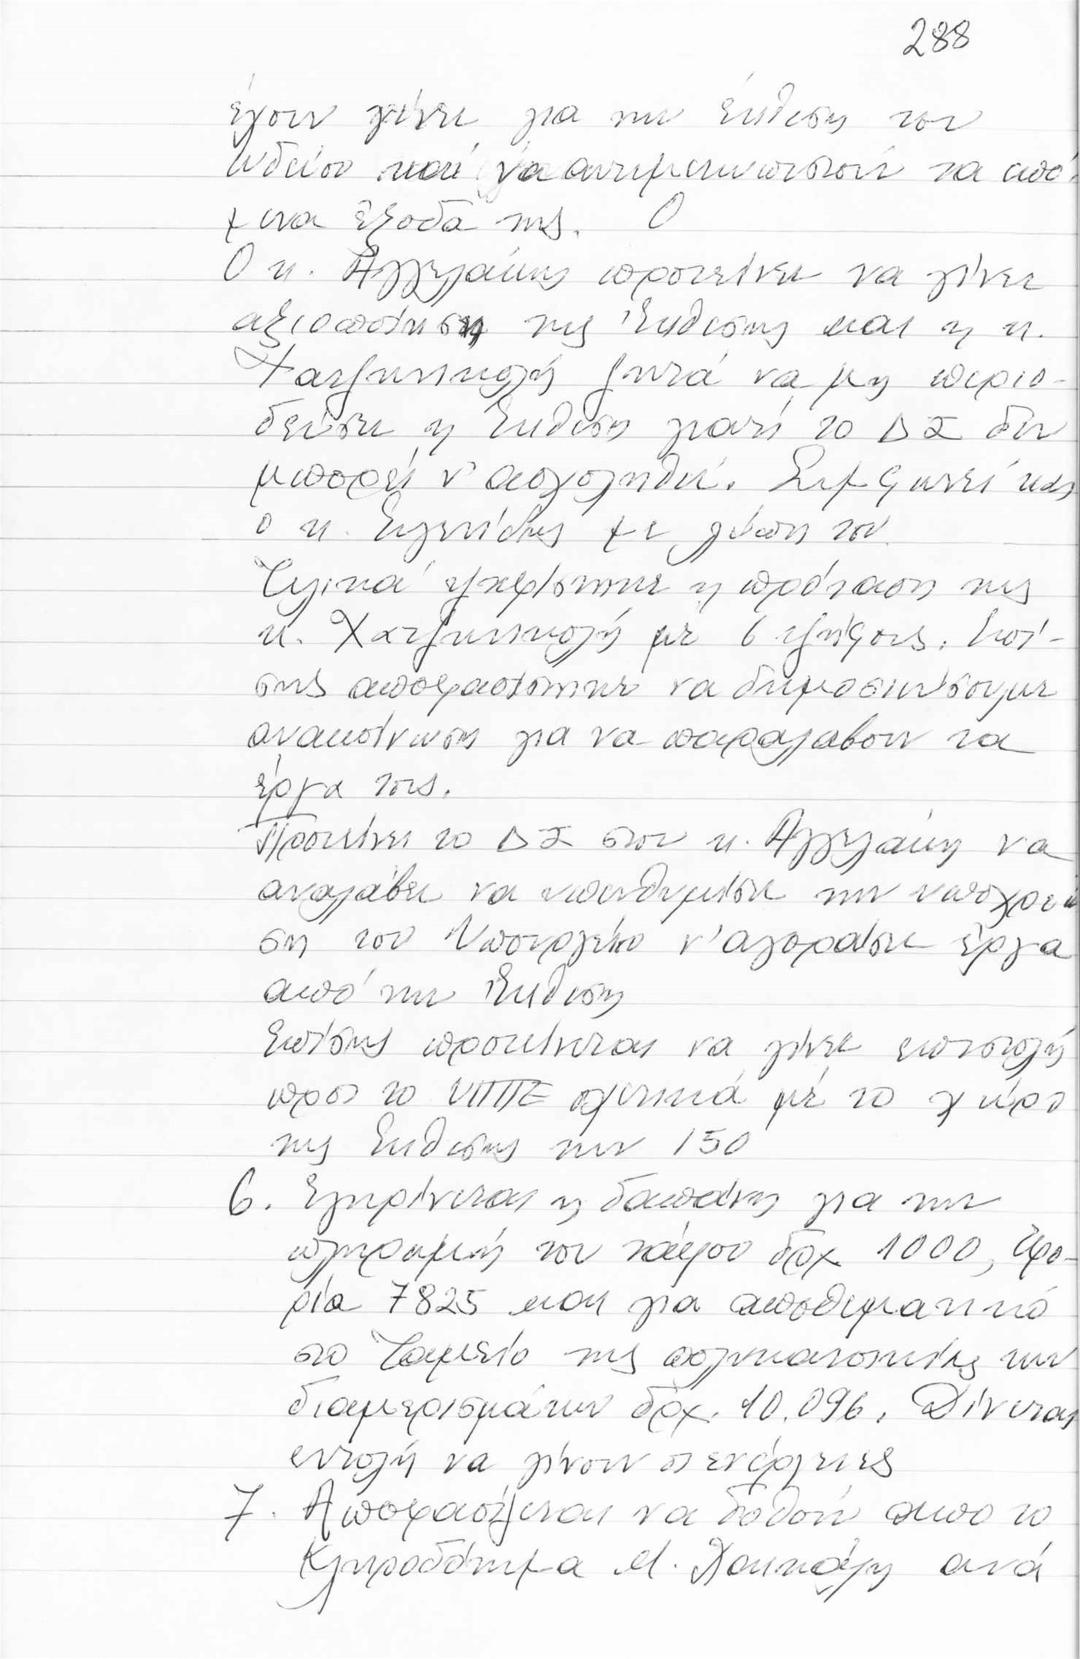 288
έχουν γίνει για την έκθεση του
Ωδείου και να αντιμετωπιστούν τα από-
μενα έξοδά της. Ο
Ο κ. Αγγελάκης προτείνει να γίνει
αξιοποίηση της Έκθεσης και η κ.
Χατζηνικολή ζητά να μη περιο-
δεύσει η Έκθεση γιατί το ΔΣ δεν
μπορεί ν' ασχοληθεί. Συμφωνεί και
ο κ. με λύπη του.
Τελικά εψηφίστηκε η πρόταση της
κ. Χατζηνικολή με 6 ψήφους. Επί-
σης αποφασίστηκε να δημοσιεύσουμε
ανακοίνωση για να παραλάβουν τα
έργα τους.
Προτείνει το ΔΣ στον κ. Αγγελάκη να
αναλάβει να υπενθυμίσει την υποχρέω
ση του Υπουργείου ν' αγοράσει έργα
από την Έκθεση
Επίσης προτείνεται να γίνει επιστολή
προς το ΥΠΠΕ σχετικά με το χώρο
της Έκθεσης των 150
6. Εγκρίνεται η δαπάνη για την
πληρωμή του τάφου δρχ 1000, Εφο-
ρία 7825 και για αποθεματικό
στο Ταμείο της πολυκατοικίας των
διαμερισμάτων δρχ. 10.096. Δίνεται
εντολή να γίνουν οι ενέργειες
7. Αποφασίζεται να δοθούν από το
Κληροδότημα Μ. ανά